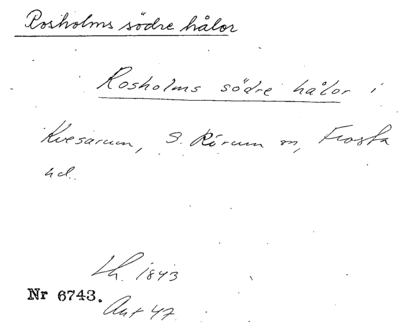 Rosholms södre hålor
Rosholms södre hålor i
Kvesarum, S. Rörum sn, Frosta
hd.
Lh. 1843
Nr 6743.
Akt 47